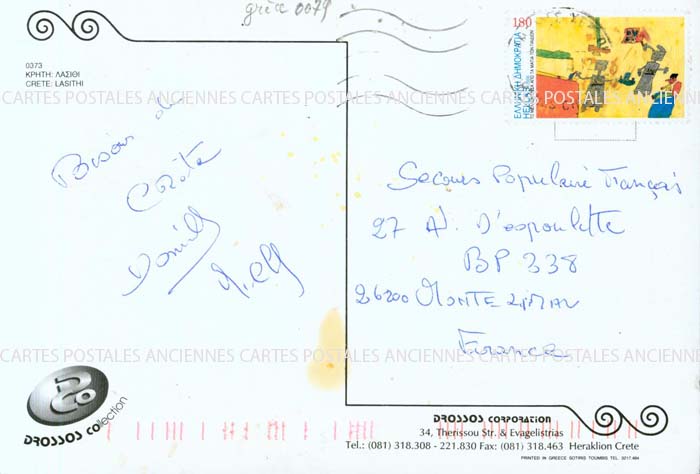 grèce 0079
0373
ΚΡΗΤΗ: ΛΑΣΙΘΙ
CRETE: LASITHI
180
ΕΛΛΗΝΙΚΗ ΔΗΜΟΚΡΑΤΙΑ
HELLAS
CARTES POSTALES ANCIENNES CARTES POSTALES ANCIENNES CARTES POSTALES ANCIENNES
Bisous de
Crète
Secours Populaire Français
27 A. D'espoulette
BP 338
26200 MONTELIMAR
France
CARTES POSTALES ANCIENNES CARTES POSTALES ANCIENNES CARTES POSTALES ANCIENNES
DROSSOS collection
DROSSOS CORPORATION
34, Therissou Str. & Evagelistrias
Tel.: (081) 318.308 - 221.830 Fax: (081) 318.463 Heraklion Crete
PRINTED IN GREECE SOTIRIS TOUMBIS TEL. 3217.464